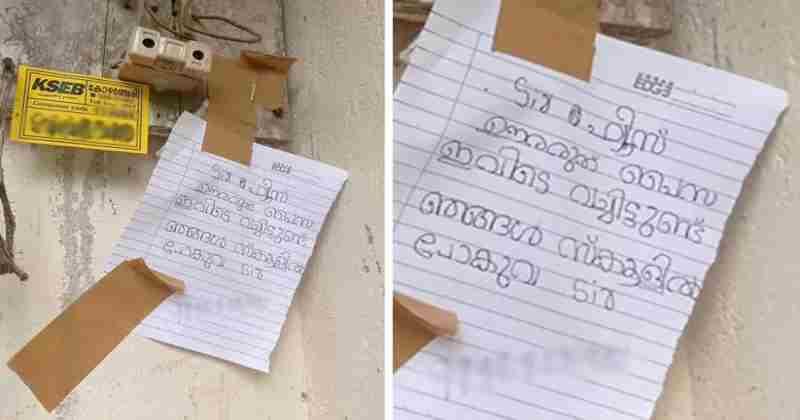 KSEB കോഴഞ്ചേരി
Sir ഫ്യൂസ്
ഊരരുത് പൈസ
ഇവിടെ വച്ചിട്ടുണ്ട്
ഞങ്ങൾ സ്ക്കൂളിൽ
പോകുവാ Sir
Sir ഫ്യൂസ്
ഊരരുത് പൈസ
ഇവിടെ വച്ചിട്ടുണ്ട്
ഞങ്ങൾ സ്ക്കൂളിൽ
പോകുവാ Sir